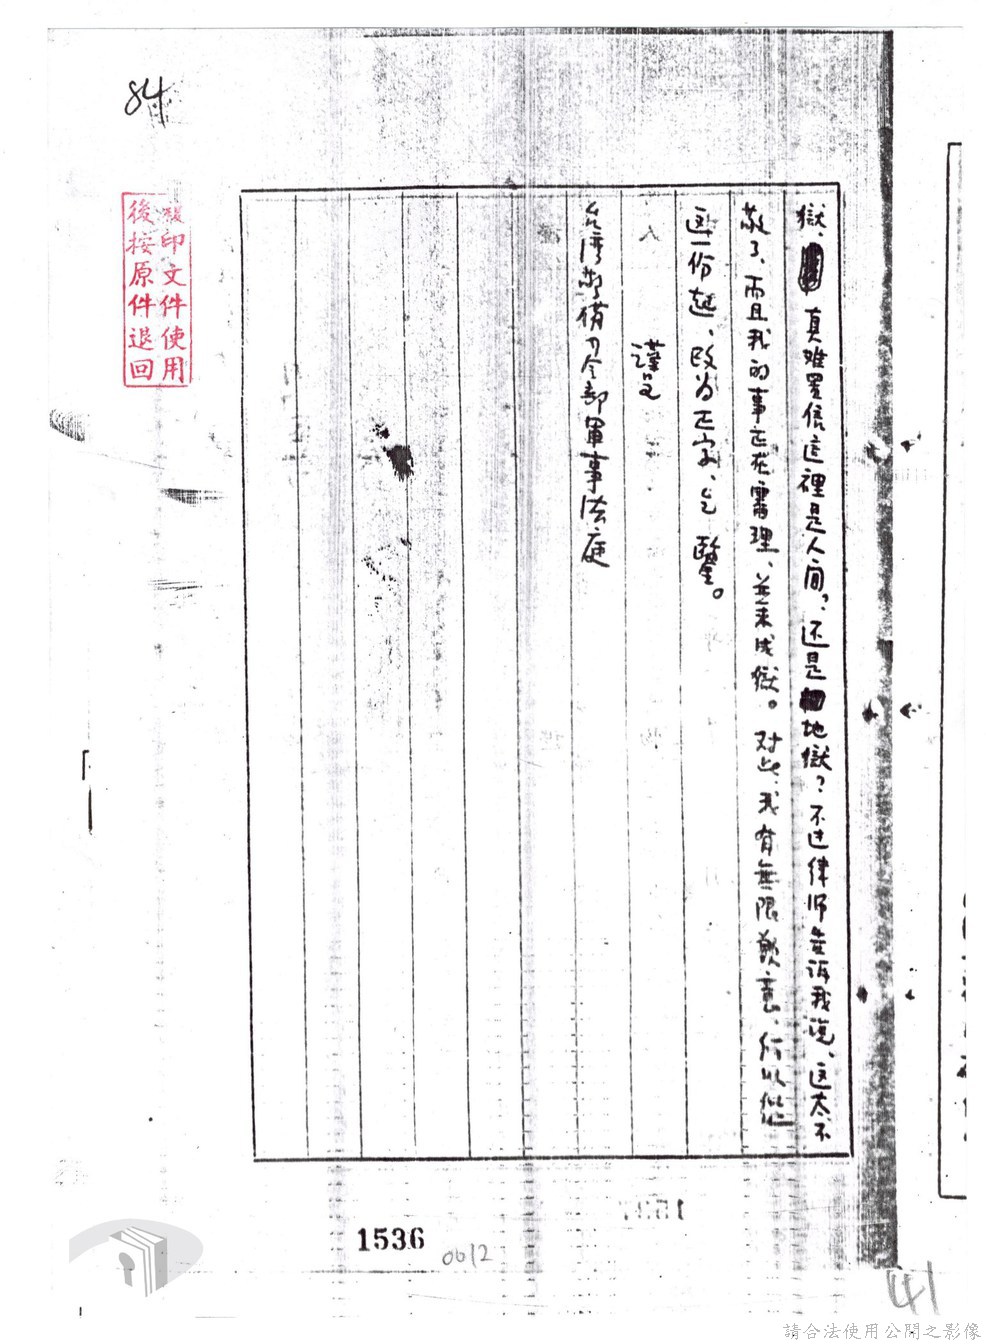 84
複印文件使用
後按原件退回
獄、真难置信這裡是人间?、还是地獄?不过律师告诉我说、这太不
敬了、而且我的事正在審理、並未成獄。对此、我有無限歉意、所以
这一份起、改为正字、乞鑒。
謹呈
台湾警備司令部軍事法庭
1536
0612
41
請合法使用公開之影像